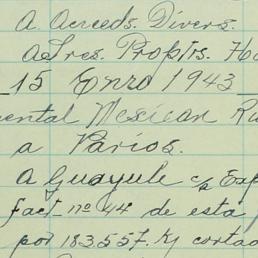 A. Acreeds. Divers.
A Sres. Proptrs. Ha
15 Enro 1943
mental Mexican Ru
a Varios.
A Guayule c/a Exp
fact- nº 44 de esta f
por 183.557. Kg cortad